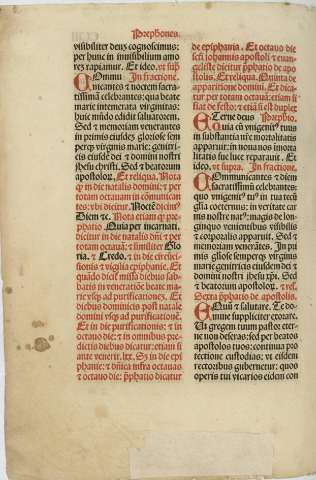 Prephones.
visibiliter deuʒ cognoscimus:
per hunc in inuisibilium amo
rez rapiamur. Et ideo. vt sup̄
In fractione.
nicantes ⁊ noctem sacra
tissimā celebrantes: qua beate
marie intemerata virginitas:
huic mūdo edidit saluatorem.
Sed ⁊ memoriam venerantes
in primis eiusdeʒ gloriose sem
perqʒ virginis marie: genitri
cis eiusdē dei ⁊ domini nostri
iesu christi. Sed ⁊ beatorum
apostoloꝝ. Et reliqua. Nota
qp in die natalis domini: ⁊ per
totam octauam in cōmunican
tes: vbi dicitur. Noctē dicimꝰ
Diem ⁊c. Nota etiam qp pre
phatio. Quia per incarnati.
dicitur in die natalis dn̄i ⁊ per
totam octauā: similiter Glo
ria. ⁊ Credo. ⁊ in die circūci
sionis ⁊ vigilia epiphanie. Et
quando dicit̄ missa diebus sab
batis in veneratiōe beate ma
rie vsqʒ ad purificationeʒ. Et
diebus dominicis post natale
domini vsqʒ ad purificationē.
Et in die purificationis: ⁊ in
die octauo: ⁊ in omnibus pre
dictis diebus dicatur: etiam si
ante venerit .lxx. Sʒ in die epi
phanie: ⁊ dn̄ica infra octauas
⁊ octauo die: p̄phatio dicatur
de epiphania. Et octauo die
sancti iohannis apostoli ⁊ euan-
geliste dicitur p̄phatio de apo
stolis. Et reliqua. Quinta de
apparitione domini. Et dica
tur per totam octauā: etiam si
fiat de festo: ⁊ etiā si ē duplex
Eterne deus Prephtio.
Quia cū vnigenitꝰ tuus in
substantia nr̄e mortalitatis
apparuit: in noua nos immor
talitatis sue luce reparauit. Et
ideo. vt supra. In fractione.
Communicantes ⁊ diem
sacratissimū celebrantes:
quo vnigenitꝰ tuꝰ in tua tecū
glia coeternus: in veritate car
nis nostre natꝰ: magis de lon-
ginquo venientibus visibilis
⁊ corporalis apparuit. Sed ⁊
memoriam venerātes. In pri
mis gliose semperqʒ virginis
marie genitricis eiusdem dei ⁊
domini nostri ihesu xp̄i. Sed
⁊ beatorum apostoloꝝ. ⁊ rel.
Sexta p̄phatio de apostolis.
Equū ⁊ salutare. Te do-
mine suppliciter exorare.
Ut gregem tuum pastor eter
ne non deseras: sed per beatos
apostolos tuos: continua pro
tectione custodias: vt eisdem
rectoribus gubernetur: quos
operis tui vicarios eidem con